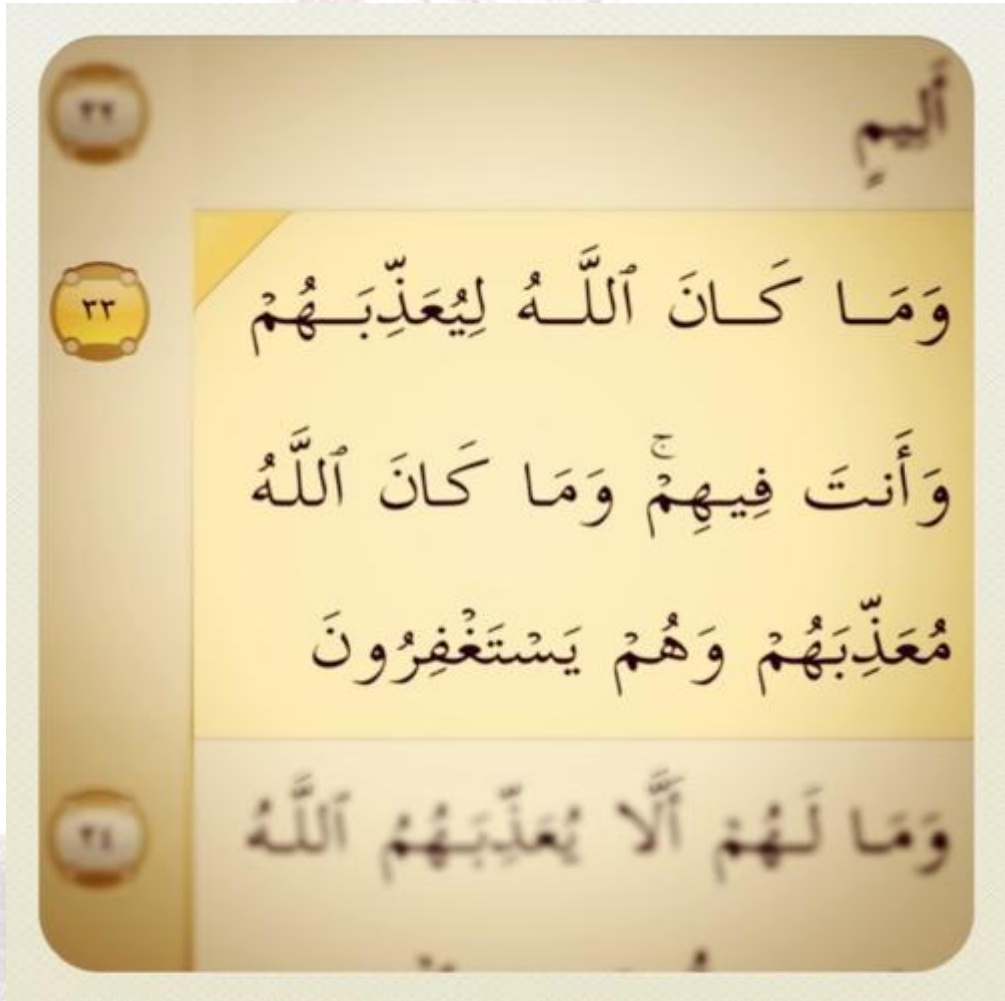 أَلِيمٍ
٣٢
وَمَـا كَـانَ ٱللَّـهُ لِيُعَذِّبَـهُمْ
٣٣
وَأَنتَ فِيهِمْ ۚ وَمَا كَانَ ٱللَّهُ
مُعَذِّبَهُمْ وَهُمْ يَسْتَغْفِرُونَ
وَمَا لَهُمْ أَلَّا يُعَذِّبَهُمُ ٱللَّهُ
٣٤